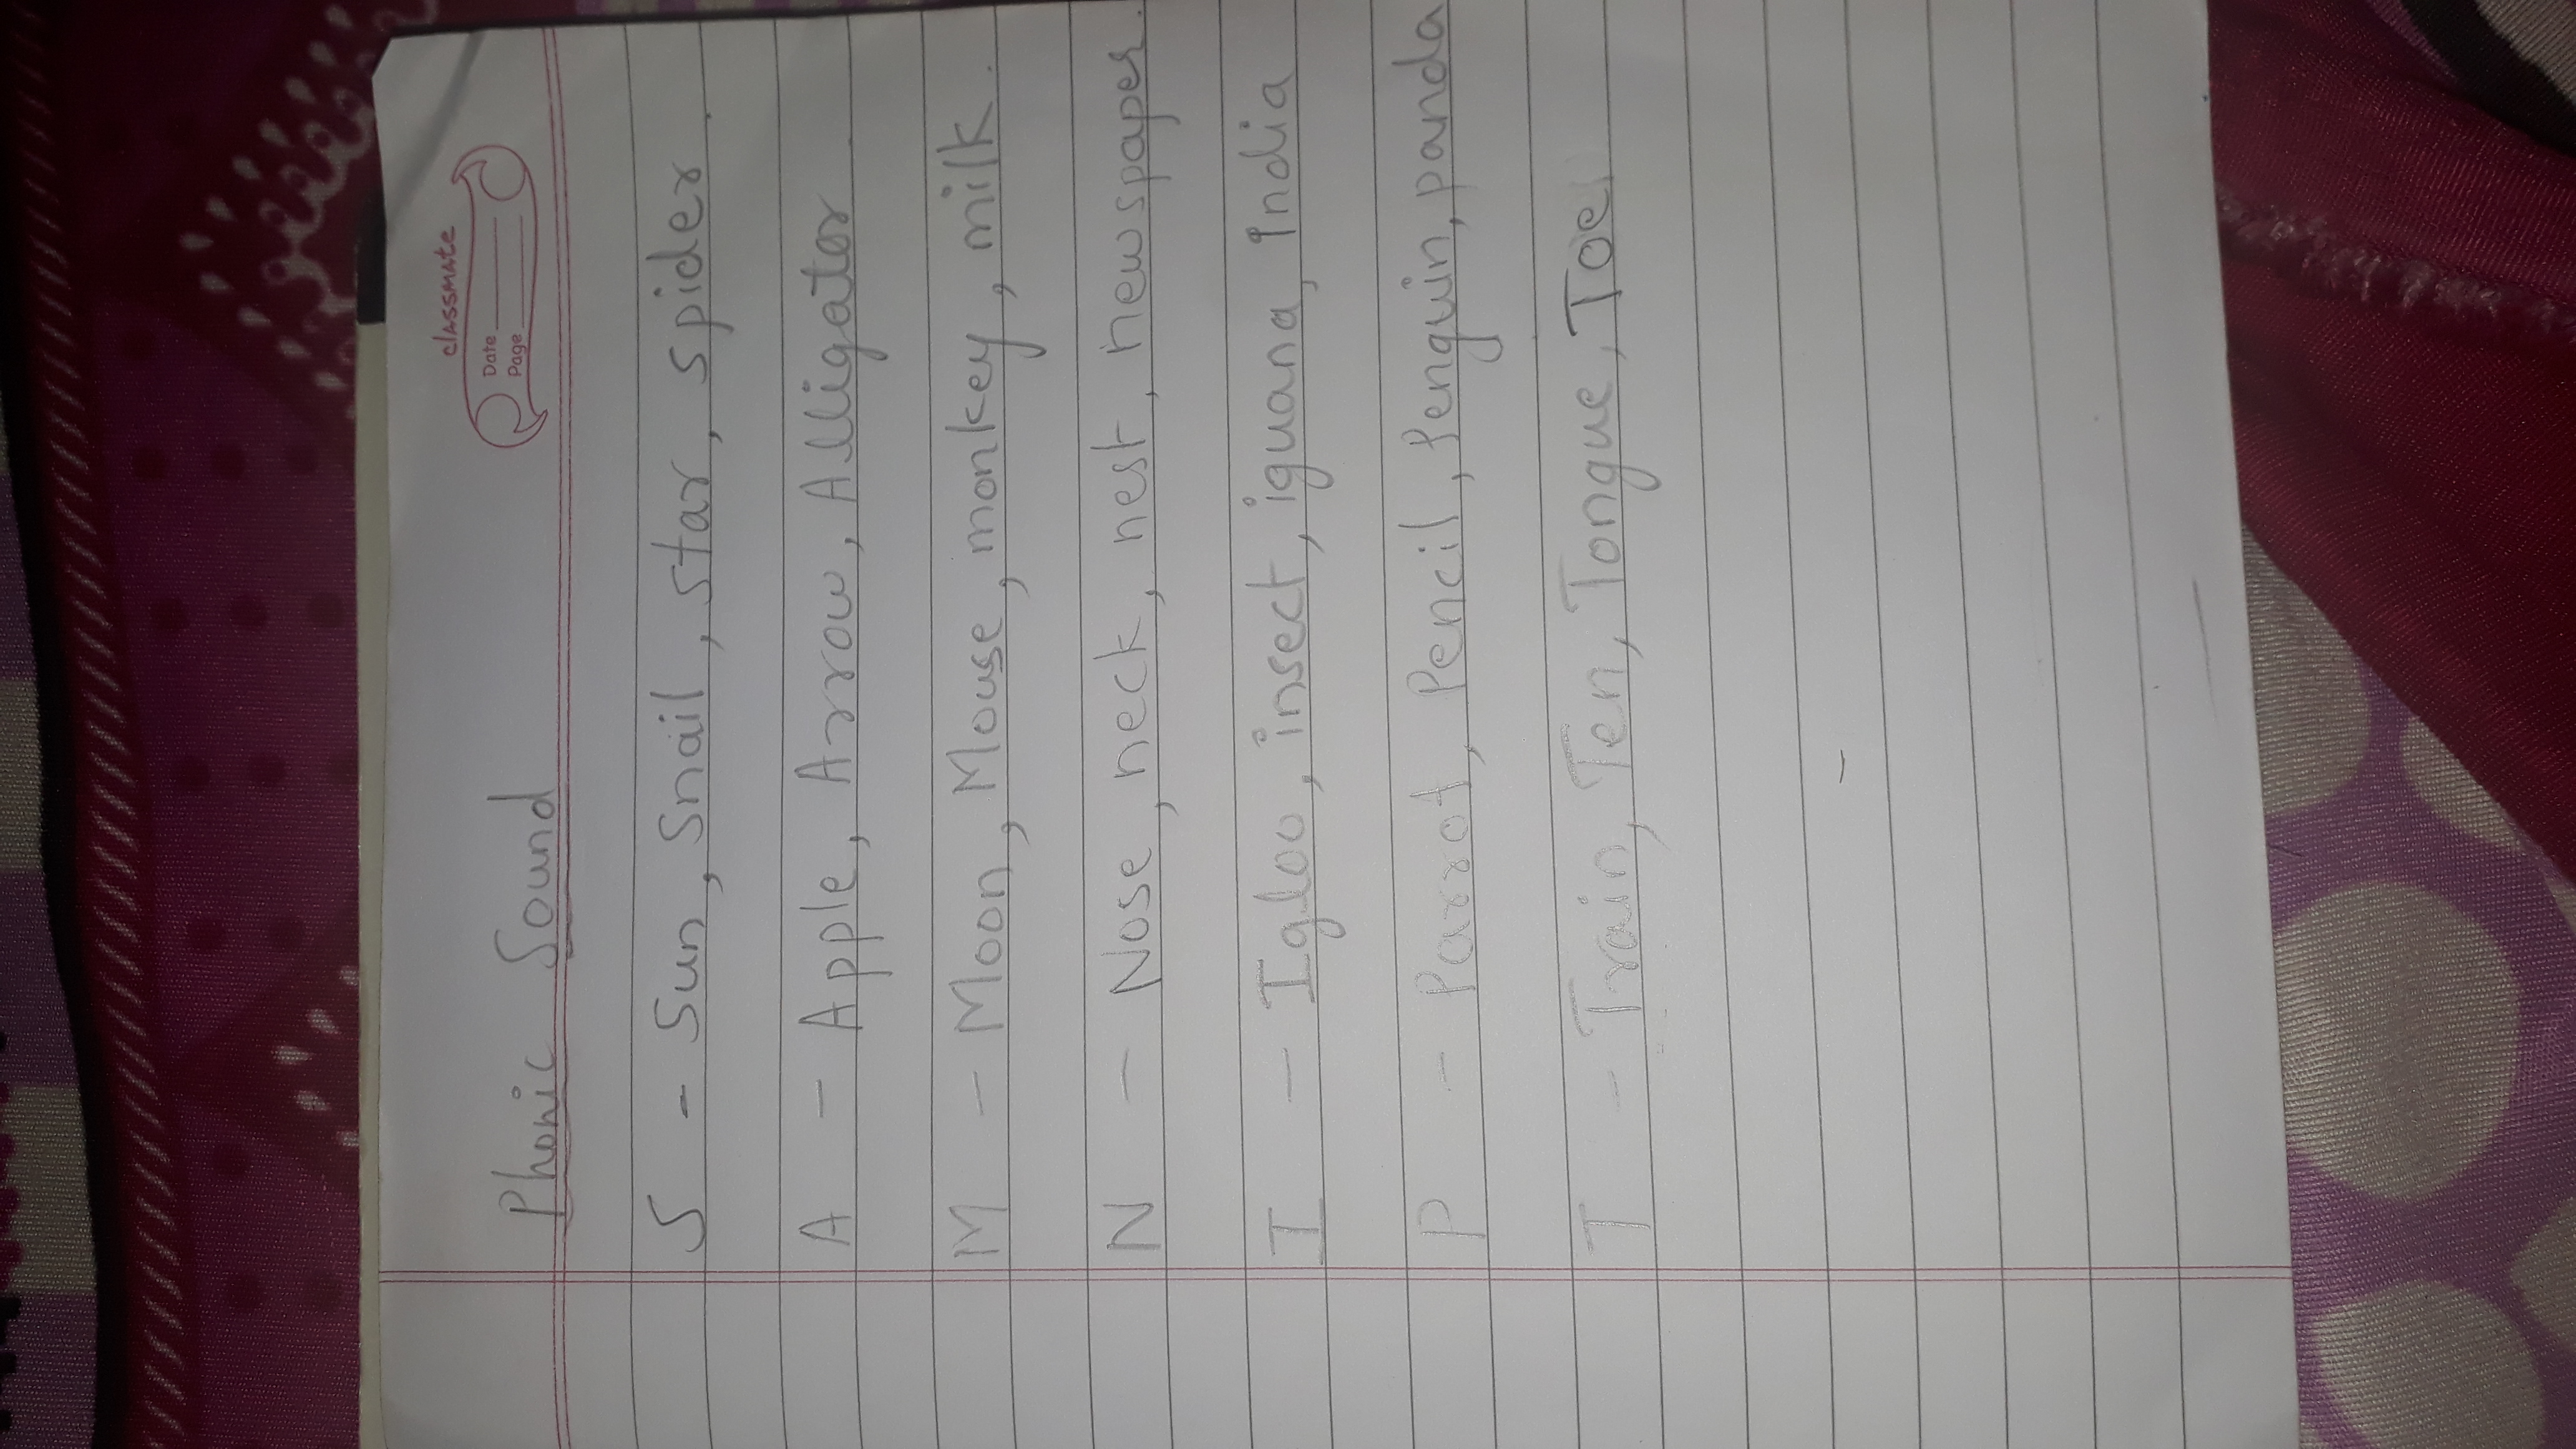 classmate
Date
Page
Phonic Sound
S - Sun, Snail, star, spider
A - Apple, Arrow, Alligator
M - Moon, Mouse, monkey, milk.
N - Nose, neck, nest, newspaper.
I - Igloo, insect, iguana, India
P - Parrot, Pencil, Penguin, panda
T - Train, Ten, Tongue, Toe